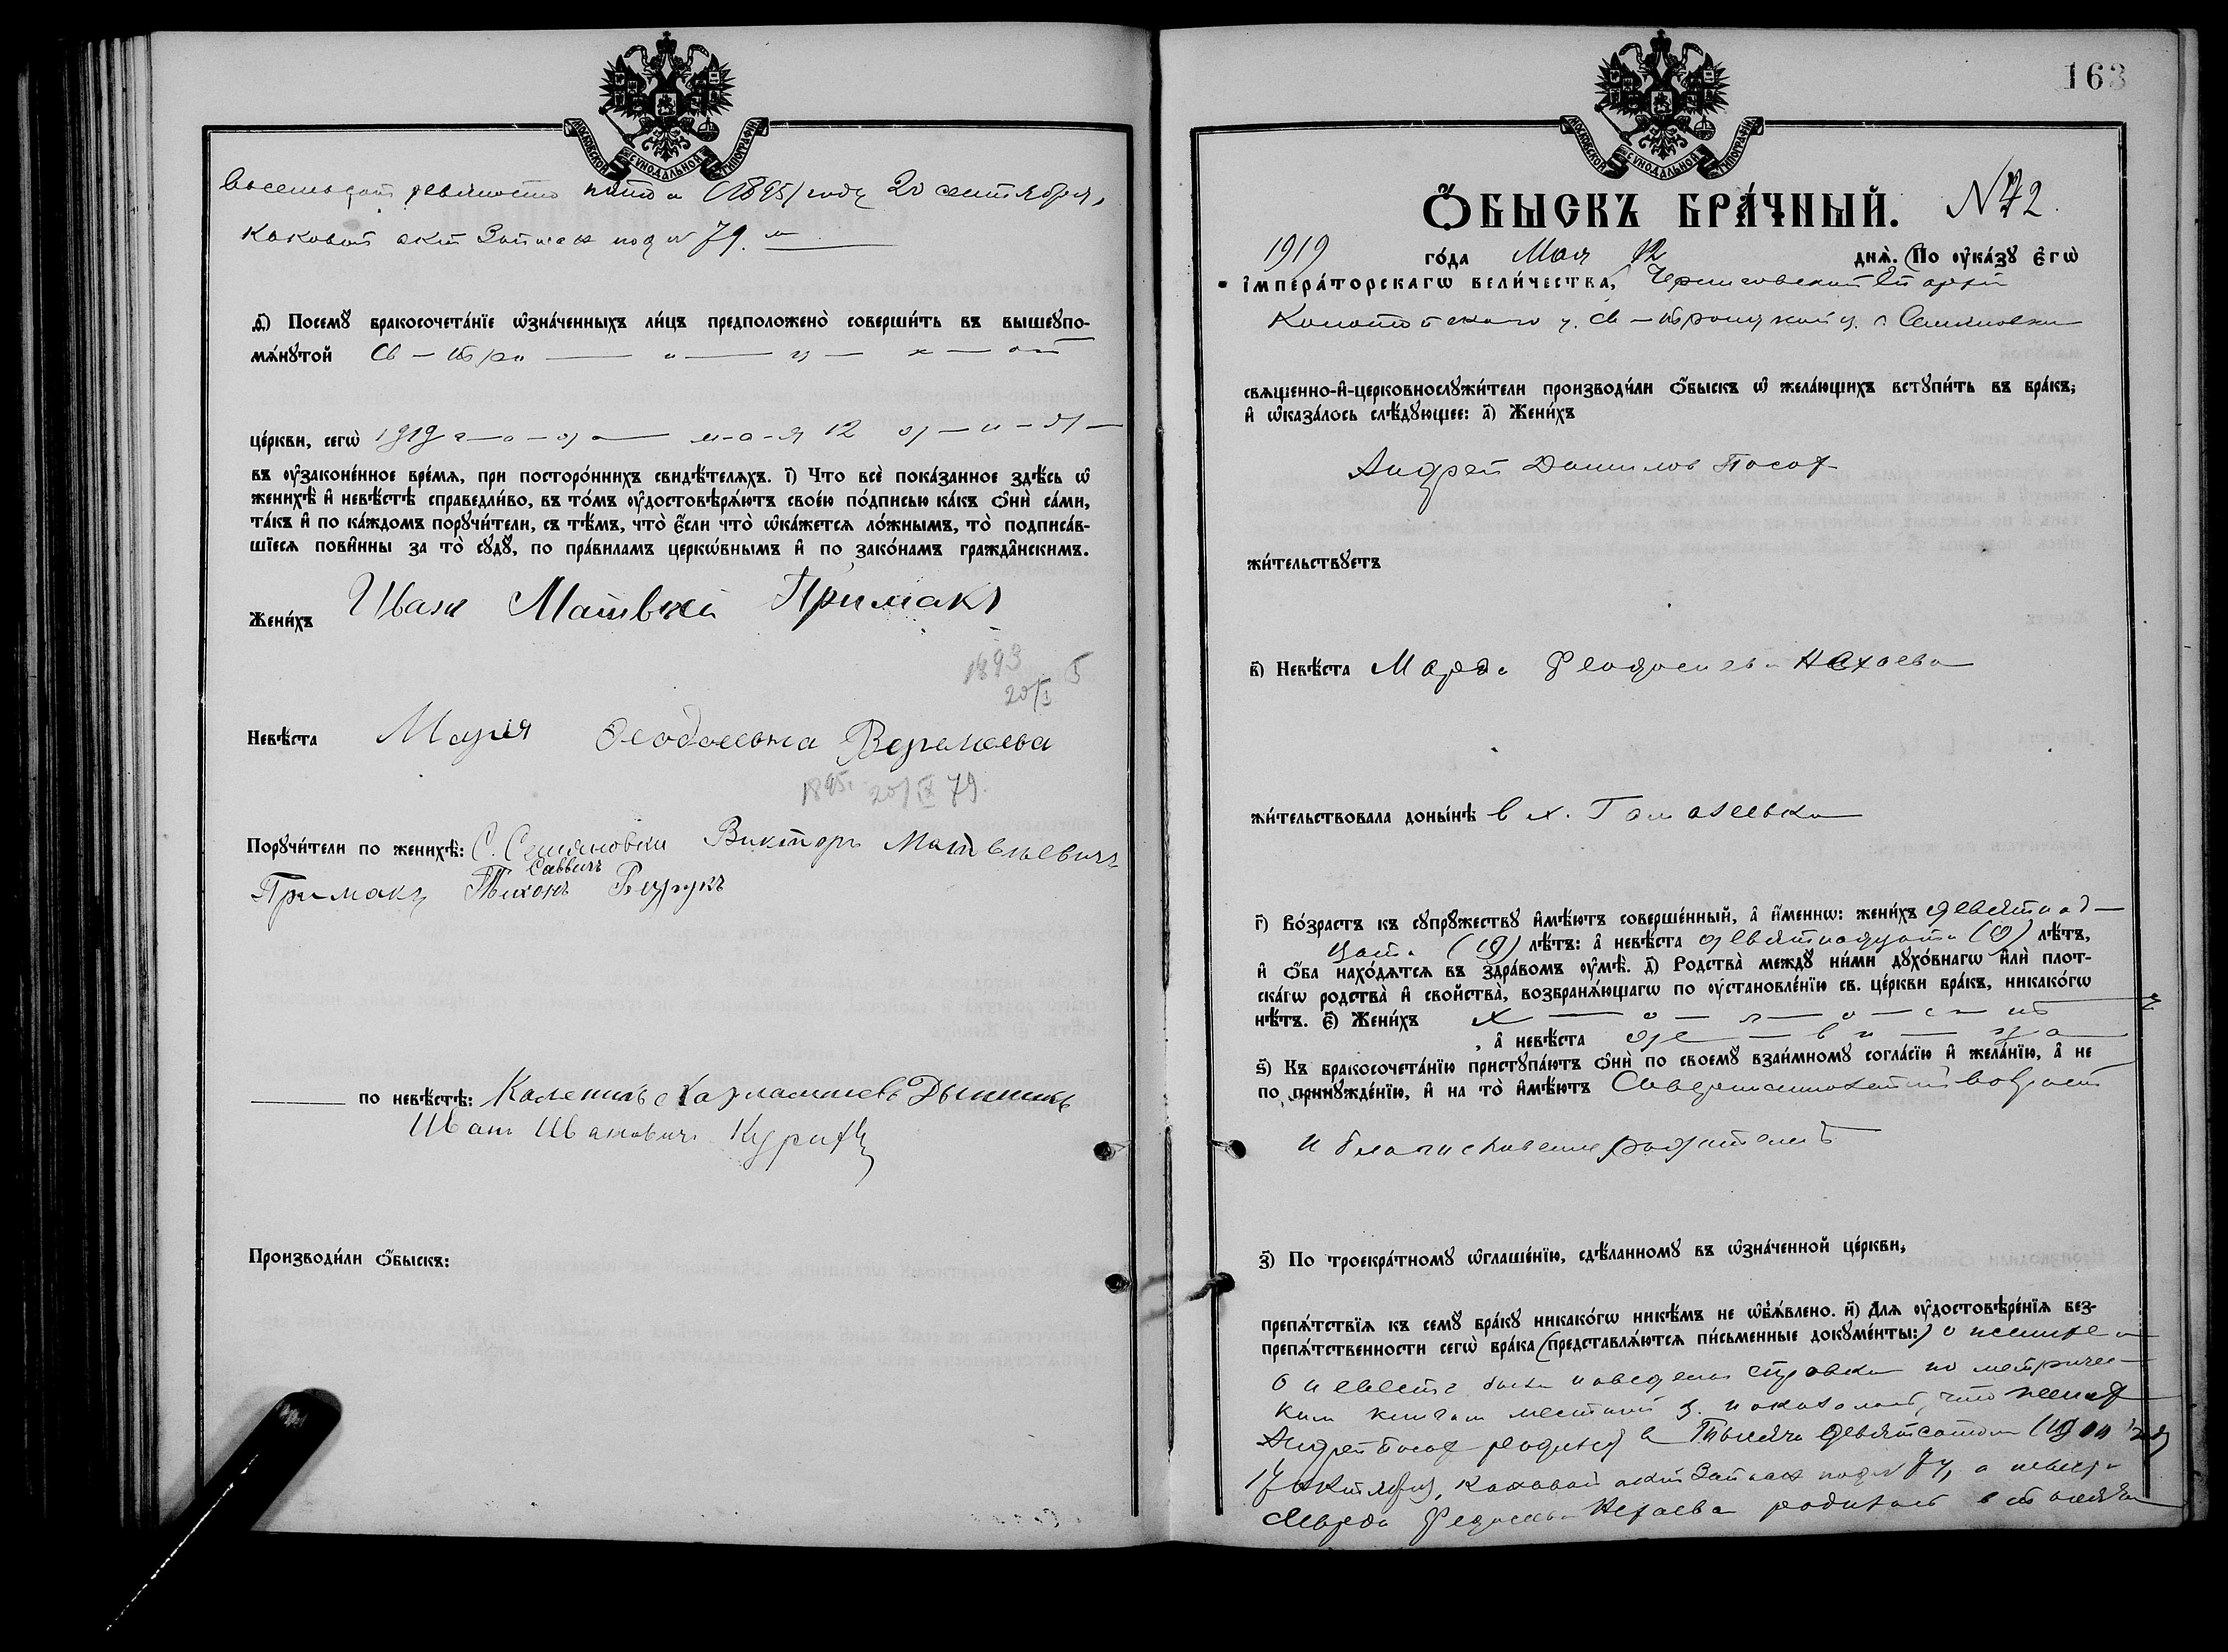 МОСКОВСКОЙ СѴНОДАЛЬНОЙ ТИПОГРАФІИ
восемьсот девяносто пятом (1895) году 20 сентября,
каковой акт записан под № 79.м
д҃і) Посемꙋ̀ бракосочета́нїе ѡ҆зна́ченныхъ ли́цъ предположено̀ соверши́ть въ вышеꙋпо-
мѧ́нꙋтой Св-Тро-и-ц-к-ой
це́ркви, сегѡ̀ 1919 г-о-д-а м-а-я 12 д-н-я
въ ᲂу҆законе́нное вре́мѧ, при посторо́ннихъ свидѣ́телѧхъ. і҃) Что̀ всѐ пока́занное здѣ́сь ѡ҆
женихѣ̀ и҆ невѣ́стѣ справедли́во, въ то́мъ ᲂу҆достовѣрѧ́ютъ свое́ю по́дписью ка́къ ѻ҆нѝ са́ми,
та́къ и҆ по ка́ждомъ порꙋчи́тели, съ тѣ́мъ, что̀ є҆́сли что̀ ѡ҆ка́жетсѧ ло́жнымъ, то̀ подписа́в-
шїесѧ пови́нны за то̀ сꙋдꙋ̀, по пра́виламъ церкѡ́внымъ и҆ по зако́намъ гражда̑нскимъ.
Жени́хъ Иван Матвей Примакъ
1893
20/I 5
Невѣ́ста Мария Феодосьевна
1895 20/IX 79.
Порꙋчи́тели по женихѣ̀: С. Семяновки Викторъ Матвѣевичъ
Саввичъ
Примакъ Тихонъ
по невѣ́стѣ: Харлампиевъ
Иван Ивановичъ
Производи́ли ѻ҆́быскъ:
163
МОСКОВСКОЙ СѴНОДАЛЬНОЙ ТИПОГРАФІИ
Ѻ҆́БЫСКЪ БРА́ЧНЫЙ. № 42.
1919 го́да Мая 12 днѧ̀. (По ᲂу҆ка́зꙋ є҆гѡ̀
і҆мпера́торскагѡ вели́чества, Черниговской Епархии
Конотопского у. Св-Троицкой ц. с. Семяновки
свѧще́нно-и҆-церковнослꙋжи́тели производи́ли ѻ҆́быскъ ѡ҆ жела́ющихъ встꙋпи́ть въ бра́къ,
и҆ ѡ҆каза́лось слѣ́дꙋющее: а҃) Жени́хъ
Андрей Данилов Посаф
жи́тельствꙋетъ
в҃) Невѣ́ста Марфа Феодосиева Нехаева
жи́тельствовала доны́нѣ в х.
г҃) Во́зрастъ къ сꙋпрꙋ́жествꙋ и҆мѣ́ютъ соверше́нный, а҆ и҆́меннѡ: жени́хъ девятнад-
цати (19) лѣ́тъ: а҆ невѣ́ста девятнадцати (19) лѣ́тъ,
и҆ ѻ҆́ба нахо́дѧтсѧ въ здра́вомъ ᲂу҆мѣ̀. д҃) Родства̀ междꙋ̀ ни́ми дꙋхо́внагѡ и҆лѝ плот-
ска́гѡ родства̀ и҆ сво́йства̀, возбранѧ́ющагѡ по ᲂу҆становле́нїю св. це́ркви бра́къ, никако́гѡ
нѣ́тъ. є҃) Жени́хъ х-о-л-о-с-т
, а҆ невѣ́ста де-ви-ца
ѕ҃) Къ бракосочета́нїю пристꙋпа́ютъ ѻ҆нѝ по своемꙋ̀ взаи́мномꙋ согла́сїю и҆ жела́нїю, а҆ не
по принꙋжде́нїю, и҆ на то̀ и҆мѣ́ютъ Совершеннолетний возраст
и благословение родителей
з҃) По троекра́тномꙋ ѡ҆глаше́нїю, сдѣ́ланномꙋ въ ѡ҆зна́ченной це́ркви,
препѧ́тствїѧ къ семꙋ̀ бра́кꙋ никако́гѡ никѣ́мъ не ѡ҆б̾ѧ́влено. и҃) Длѧ ᲂу҆достовѣре́нїѧ без-
препѧ́тственности сегѡ̀ бра́ка (представлѧ́ютсѧ пи́сьменные докꙋме́нты:) о женихе и
о невесте была наведена справка по метричес-
ким книгам местной ц. и оказалось, что жених
Андрей Посаф родился в тысяча девятсотом (1900 году
17 октября, каковой акт записан под № 74, а невеста
Марфа Федосиева Нехаева родилась в тысяча